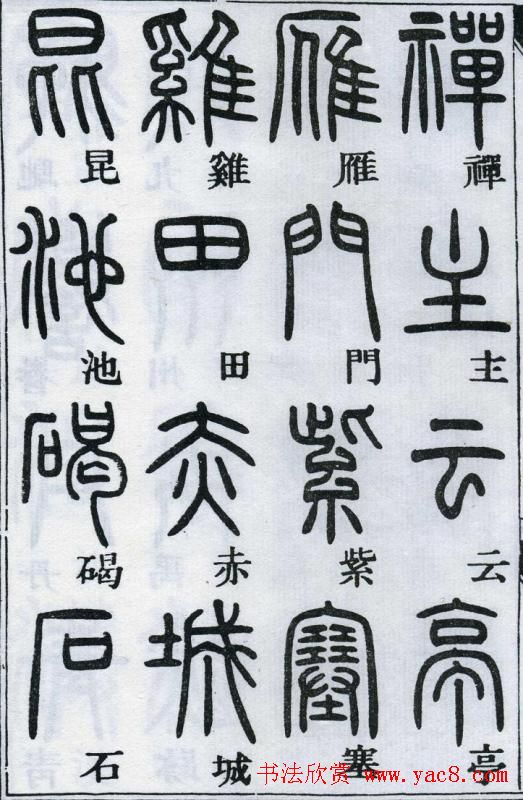 禪主云亭
雁門紫塞
雞田赤城
昆池碣石
书法欣赏 www.yac8.com